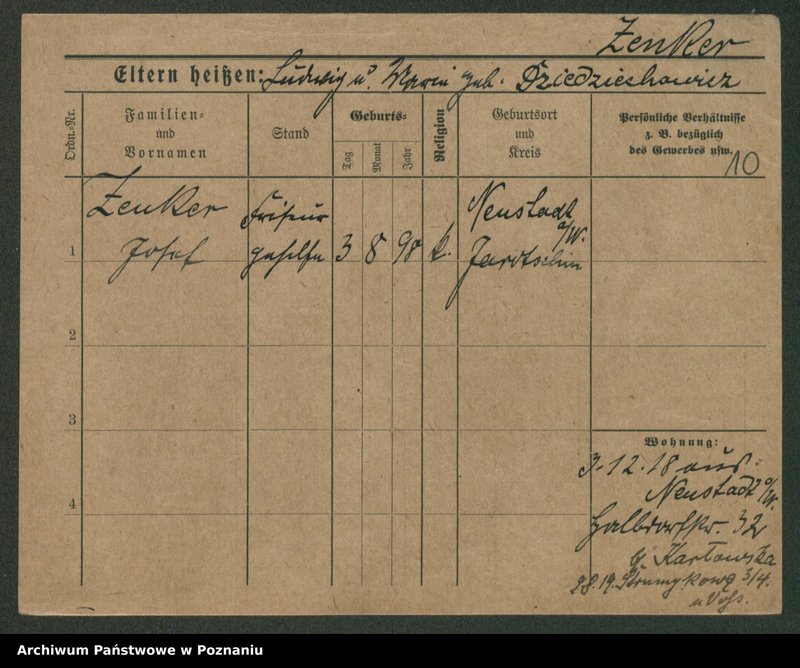 Zenker
Eltern heißen: Ludwig u. Maria geb. Dziedziechowicz
Ordn.-Nr.
Familien- und Vornamen
Stand
Geburts-
Tag
Monat
Jahr
Religion
Geburtsort und Kreis
Persönliche Verhältnisse
z. B. bezüglich
des Gewerbes usw.
10
Zenker Friseur Neustadt a/W.
1 Josef gehilfe 3 8 98 k. Jarotschin
2
3
4
Wohnung:
3.12.18 aus
Neustadt a/W.
Halbdorfstr. 32
b. Karłowska
Strumykowa 3/4.
Archiwum Państwowe w Poznaniu